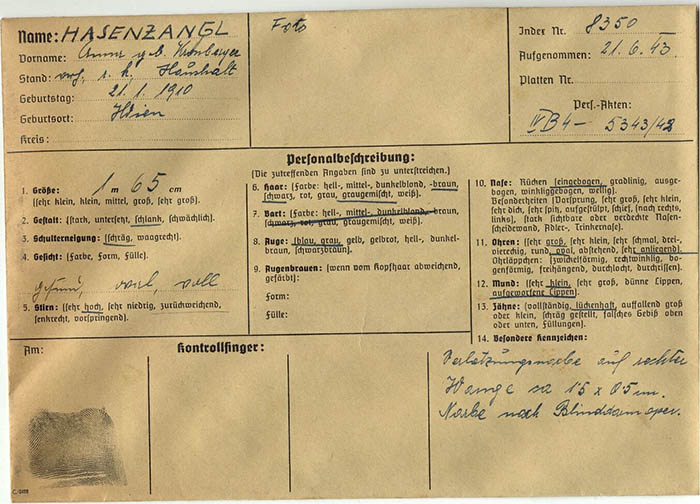 Name: HASENZANGL
Vorname: Anna geb. Kronberger
Stand: r. k. Haushalt
Geburtstag: 21. 1. 1910
Geburtsort: Wien
Kreis:
Foto
Index Nr. 8350
Aufgenommen: 21. 6. 43
Platten Nr.
Pers.-Akten:
IV B 4 – 5343/42
Personalbeschreibung:
(Die zutreffenden Angaben sind zu unterstreichen.)
1. Größe: 1 m 65 cm
(sehr klein, klein, mittel, groß, sehr groß).
2. Gestalt: (stark, untersetzt, schlank, schwächlich).
3. Schulterneigung: (schräg, waagrecht).
4. Gesicht: (Farbe, Form, Fülle).
gesund, oval, voll
5. Stirn: (sehr hoch, sehr niedrig, zurückweichend,
senkrecht, vorspringend).
6. Haar: (Farbe: hell-, mittel-, dunkelblond, -braun,
schwarz, rot, grau, graugemischt, weiß).
7. Bart: (Farbe: hell-, mittel-, dunkelblond, -braun,
schwarz, rot, grau, graugemischt, weiß).
8. Auge: (blau, grau, gelb, gelbrot, hell-, dunkel-
braun, schwarzbraun).
9. Augenbrauen: (wenn vom Kopfhaar abweichend,
gefärbt):
Form:
Fülle:
10. Nase: Rücken (eingebogen, gradlinig, ausge-
bogen, winkliggebogen, wellig).
Besonderheiten (Vorsprung, sehr groß, sehr klein,
sehr dick, sehr spitz, aufgestülpt, schief, (nach rechts,
links), stark sichtbare oder verdeckte Nasen-
scheidewand, Adler-, Trinkernase).
11. Ohren: (sehr groß, sehr klein, sehr schmal, drei-,
viereckig, rund, oval, abstehend, sehr anliegend).
Ohrläppchen: (zwickelförmig, rechtwinklig, bo-
genförmig, freihängend, durchlocht, durchrissen).
12. Mund: (sehr klein, sehr groß, dünne Lippen,
aufgeworfene Lippen).
13. Zähne: (vollständig, lückenhaft, auffallend groß
oder klein, schräg gestellt, falsches Gebiß oben
oder unten, Füllungen).
14. Besondere Kennzeichen:
Verletzungsnarbe auf rechter
Wange ca 1.5 x 0.5 cm.
Narbe nach Blinddarmoper.
Am:
Kontrollfinger: